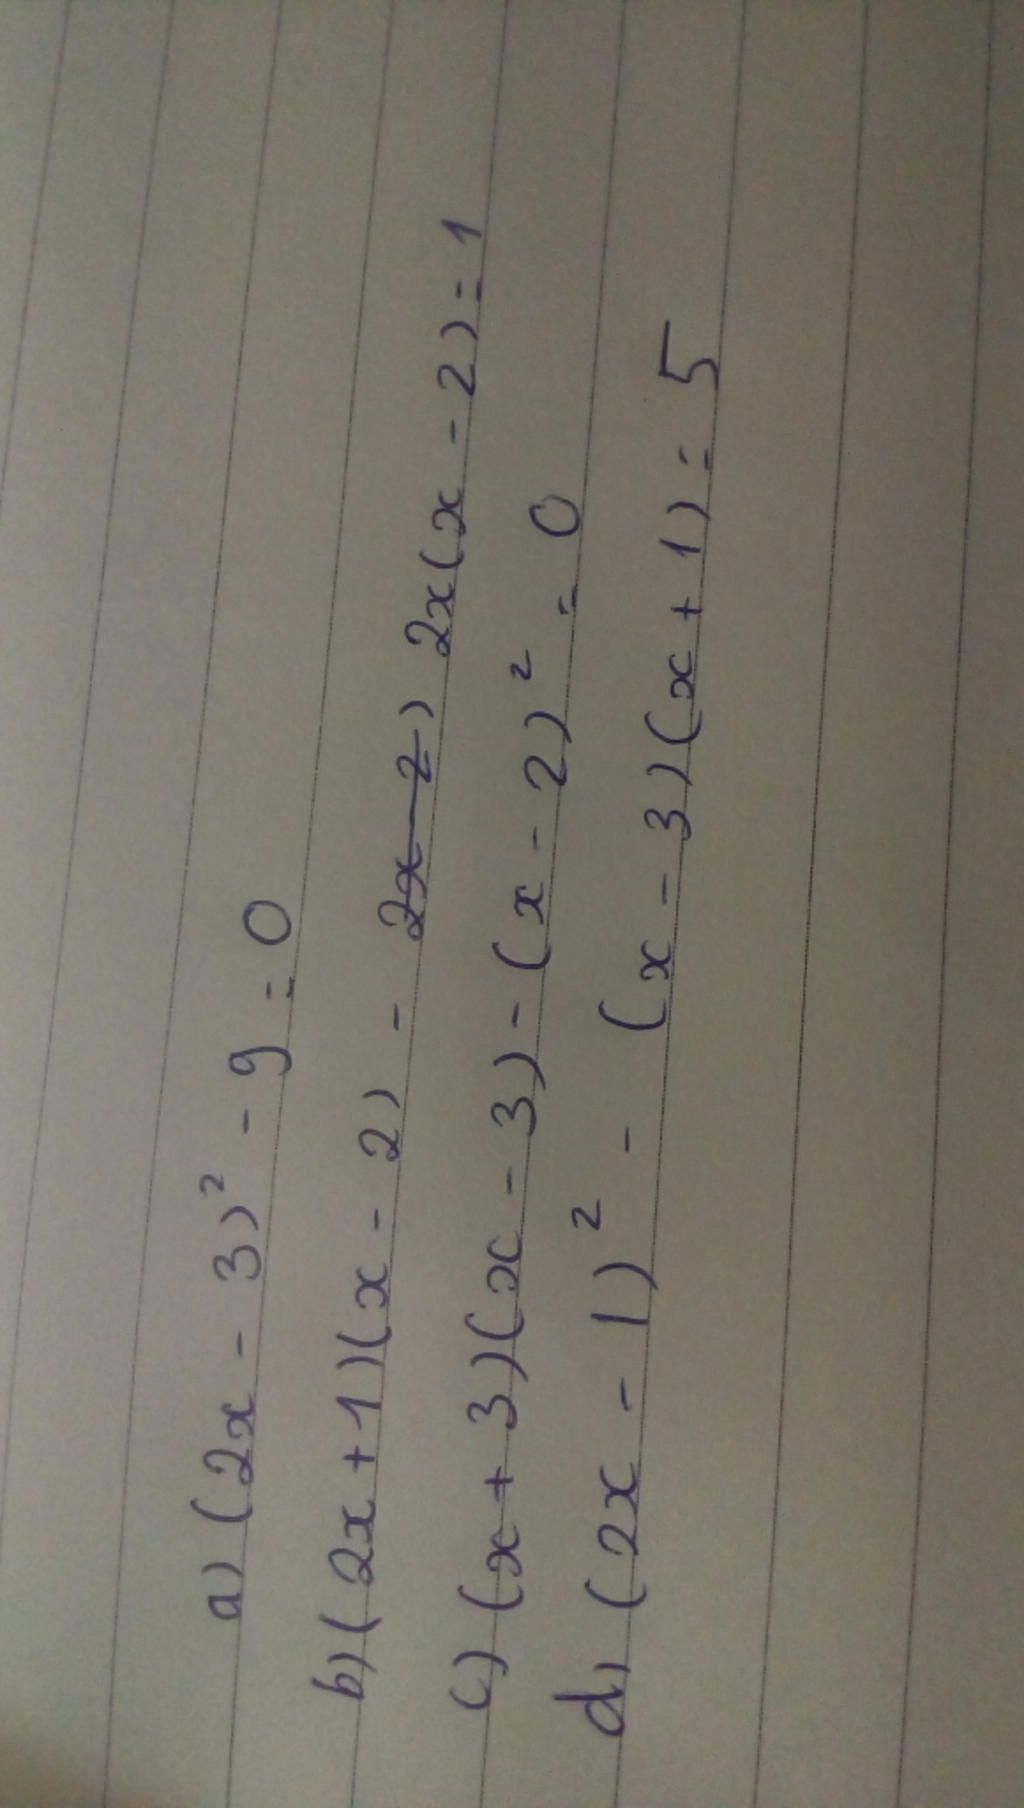 a) (2x - 3)² - 9 = 0
b) (2x + 1)(x - 2) - 2x(x - 2) = 1
c) (x + 3)(x - 3) - (x - 2)² = 0
d) (2x - 1)² - (x - 3)(x + 1) = 5